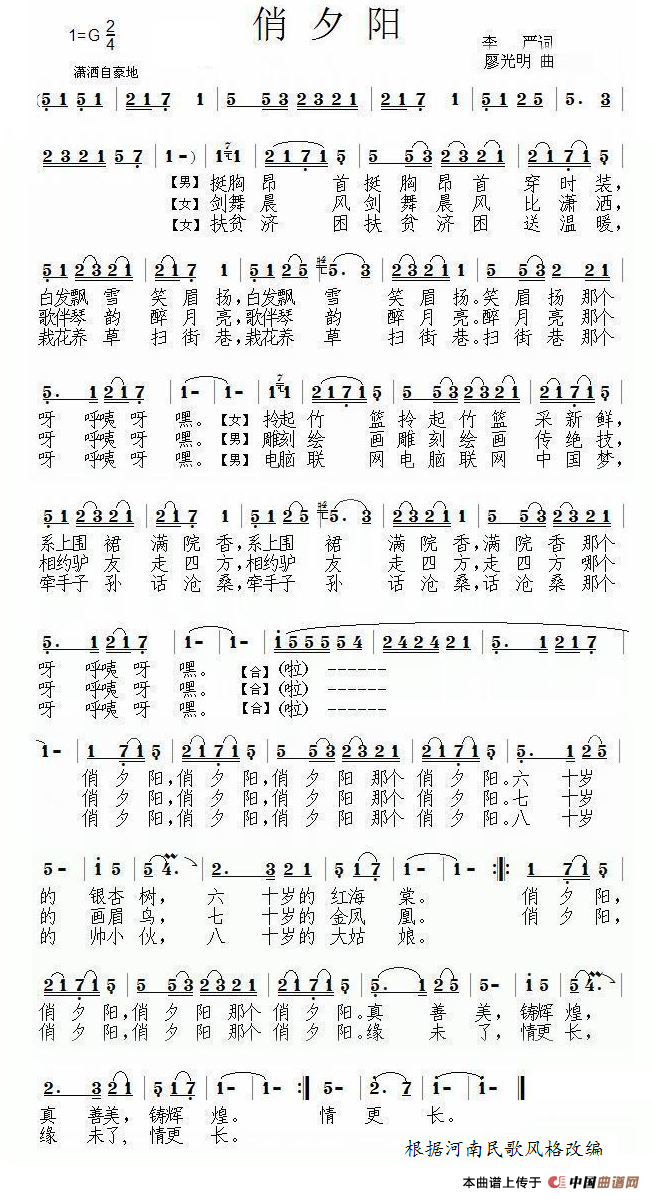 俏夕阳
1=G 2/4
李 严词
廖光明 曲
潇洒自豪地
(5 1 5 1 | 2 1 7 1 | 5 5 3 2 3 2 1 | 2 1 7 1 | 5 1 2 5 | 5. 3 |
2 3 2 1 5 7 | 1 - ) | 1 1 7 | 2 1 7 1 5 | 5 5 3 2 3 2 1 | 2 1 7 1 5 |
【男】挺胸昂 首挺胸昂首 穿时装，
【女】剑舞晨 风剑舞晨风 比潇洒，
【女】扶贫济 困扶贫济困 送温暖，
5 1 2 3 2 1 | 2 1 7 1 | 5 1 2 5 | 5. 3 | 2 3 2 1 5 1 | 5 5 3 2 2 1 |
白发飘 雪 笑眉扬，白发飘 雪 笑眉扬。笑眉扬 那个
歌伴琴 韵 醉月亮，歌伴琴 韵 醉月亮。醉月亮 那个
栽花养 草 扫街巷，栽花养 草 扫街巷。扫街巷 那个
5. 1 | 2 1 7 | 1 - | 1 - | 1 1 7 | 2 1 7 1 5 | 5 5 3 2 3 2 1 | 2 1 7 1 5 |
呀 呼咦呀 嘿。【女】拎起竹 篮拎起竹篮 采新鲜，
呀 呼咦呀 嘿。【男】雕刻绘 画雕刻绘画 传绝技，
呀 呼咦呀 嘿。【男】电脑联 网电脑联网 中国梦，
5 1 2 3 2 1 | 2 1 7 1 | 5 1 2 5 | 5. 3 | 2 3 2 1 5 1 | 5 5 3 2 3 2 1 |
系上围 裙 满院香，系上围 裙 满院香，满院香 那个
相约驴 友 走四方，相约驴 友 走四方，走四方 哪个
牵手子 孙 话沧桑，牵手子 孙 话沧桑，话沧桑 那个
5. 1 | 2 1 7 | 1 - | 1 - | 1 5 5 5 5 4 | 2 4 2 4 2 1 | 5. 1 | 2 1 7 |
呀 呼咦呀 嘿。【合】(啦) ------
呀 呼咦呀 嘿。【合】(啦) ------
呀 呼咦呀 嘿。【合】(啦) ------
1 - | 1 7 1 5 | 2 1 7 1 5 | 5 5 3 2 3 2 1 | 2 1 7 1 5 | 5. 1 2 5 |
俏夕阳，俏夕阳，俏夕阳 那个 俏夕阳。六 十岁
俏夕阳，俏夕阳，俏夕阳 那个 俏夕阳。七 十岁
俏夕阳，俏夕阳，俏夕阳 那个 俏夕阳。八 十岁
5 - | 1 5 | 5 4. | 2. 3 | 3 2 1 | 5 1 7 | 1 - | 1 - :‖: 1 7 1 5 |
的 银杏 树， 六 十岁的 红海 棠。 俏夕阳，
的 画眉 鸟， 七 十岁的 金凤 凰。 俏夕阳，
的 帅小 伙， 八 十岁的 大姑 娘。
2 1 7 1 5 | 5 5 3 2 3 2 1 | 2 1 7 1 5 | 5. 1 | 2 5 | 5 - | 1 5 | 5 4. |
俏夕阳，俏夕阳 那个 俏夕阳。真 善 美，铸辉 煌，
俏夕阳，俏夕阳 那个 俏夕阳。缘 未 了，情更 长，
2. 3 | 2 1 | 5 1 7 | 1 - | 1 - :‖ 5 - | 2. 7 | 1 - | 1 - ‖
真 善美，铸辉 煌。 情更 长。
缘 未了，情更 长。
根据河南民歌风格改编
本曲谱上传于 中国曲谱网